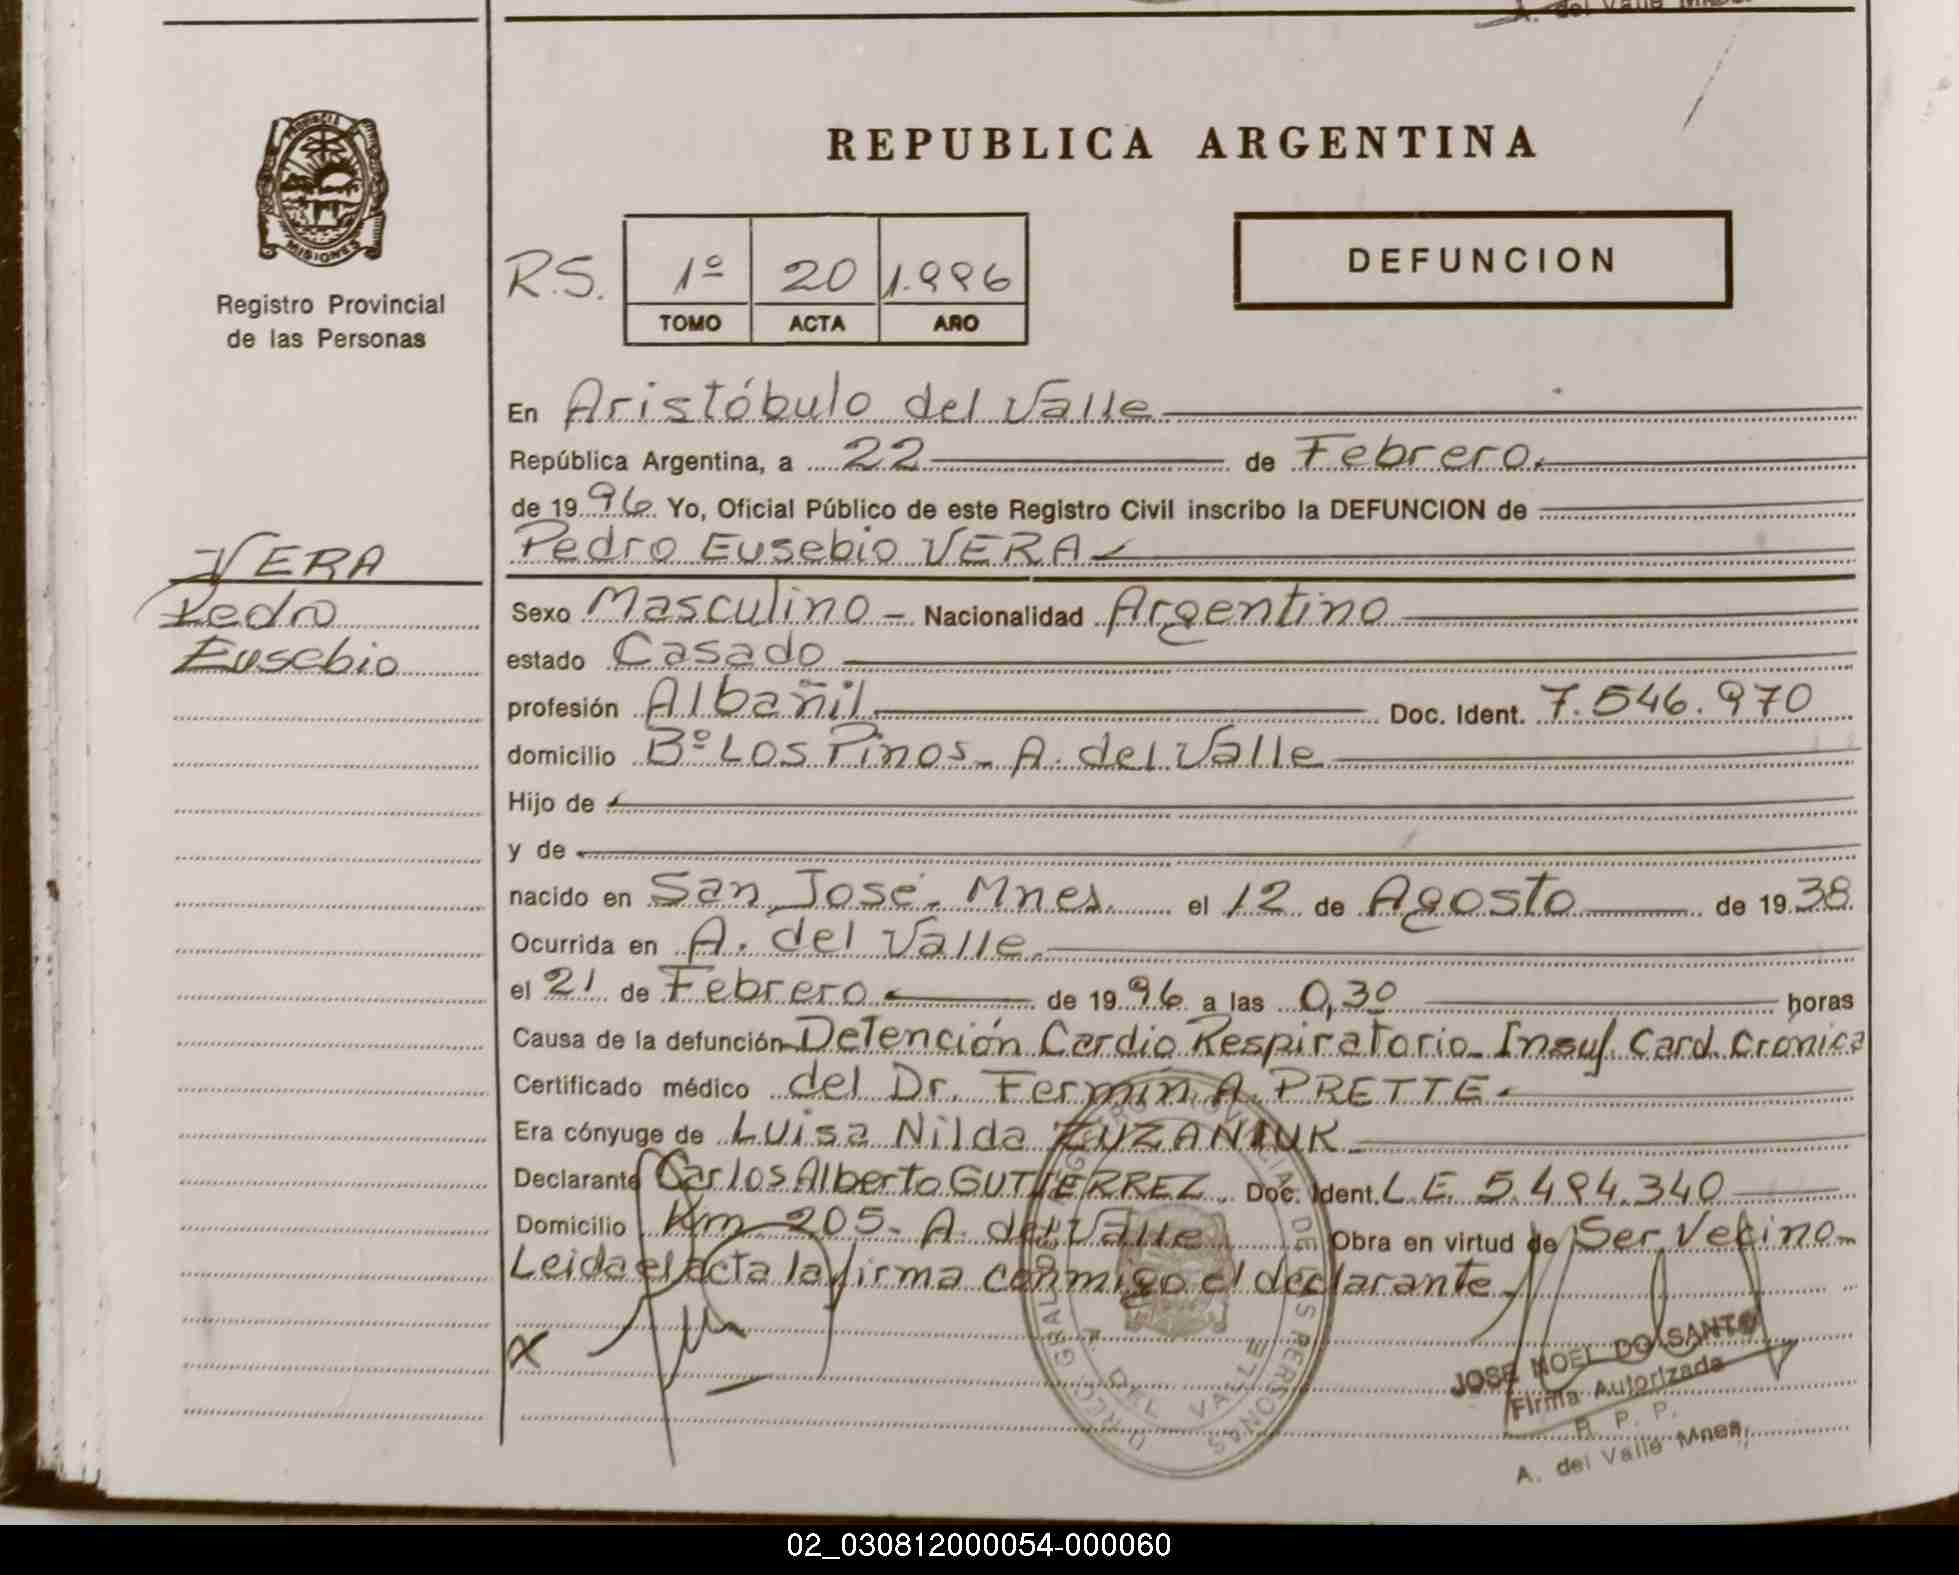 A. del Valle Mnes.
REPUBLICA ARGENTINA
PROVINCIA DE
MISIONES
Registro Provincial
de las Personas
R.S. 1º 20 1.996
TOMO ACTA AÑO
DEFUNCION
En Aristóbulo del Valle
República Argentina, a 22 de Febrero.
de 1996 Yo, Oficial Público de este Registro Civil inscribo la DEFUNCION de
Pedro Eusebio VERA
VERA
Pedro
Eusebio
Sexo Masculino - Nacionalidad Argentino
estado Casado
profesión Albañil Doc. Ident. 7.546.970
domicilio Bº Los Pinos - A. del Valle
Hijo de
y de
nacido en San José - Mnes. el 12 de Agosto de 1938
Ocurrida en A. del Valle.
el 21 de Febrero de 1996 a las 0,30 horas
Causa de la defunción Detención Cardio Respiratorio - Insuf. Card. Crónica
Certificado médico del Dr. Fermín A. PRETTE -
Era cónyuge de Luisa Nilda ZUZANIUK -
Declarante Carlos Alberto GUTIERREZ Doc. Ident. L.E. 5.494.340
Domicilio Km 205 - A. del Valle Obra en virtud de Ser Vecino -
Leida el acta la firma conmigo el declarante
x
DEL VALLE
DE LAS PERSONAS
JOSE NOEL DO SANTO
Firma Autorizada
R. P. P.
A. del Valle Mnes,
02_030812000054-000060